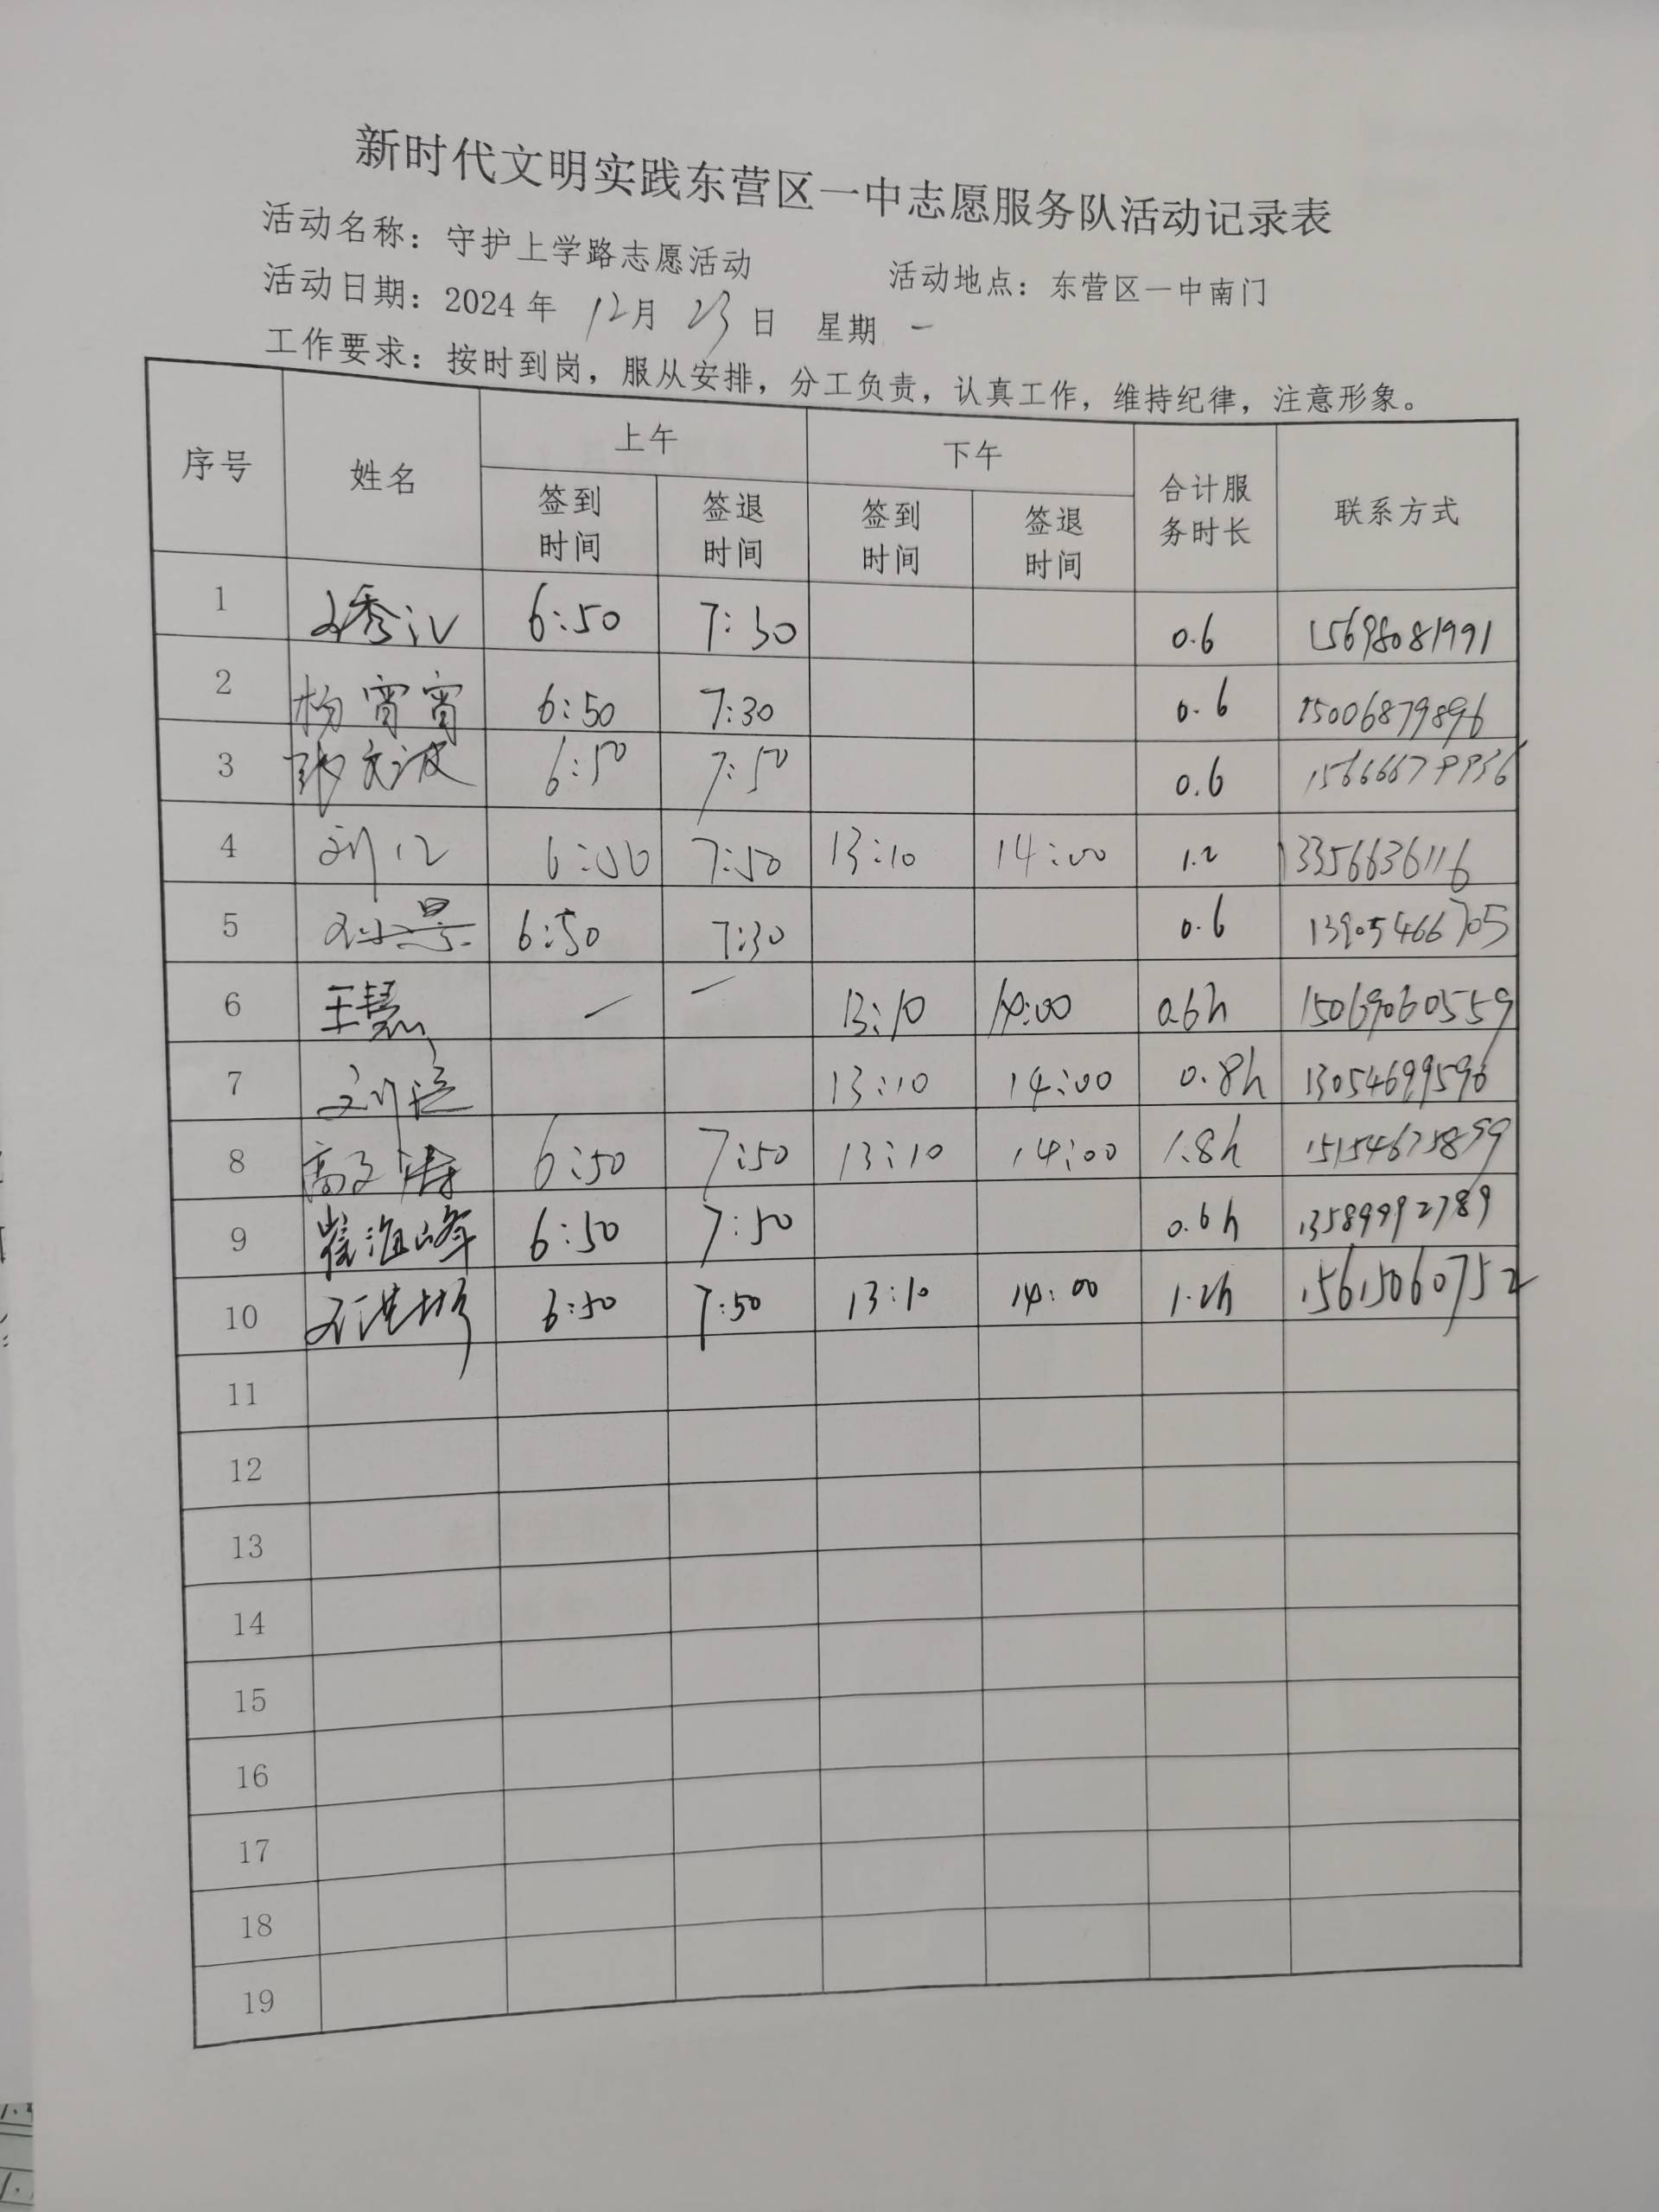 新时代文明实践东营区一中志愿服务队活动记录表
活动名称：守护上学路志愿活动 活动地点：东营区一中南门
活动日期：2024年 12月 23日 星期 一
工作要求：按时到岗，服从安排，分工负责，认真工作，维持纪律，注意形象。
序号 姓名 上午 下午 合计服务时长 联系方式
签到时间 签退时间 签到时间 签退时间
1 6:50 7:30 0.6 15698081991
2 杨宵宵 6:50 7:30 0.6 15006879896
3 张文波 6:50 7:50 0.6
4 7:50 13:10 14:00 1.2 13356636116
5 6:50 7:30 0.6 13905466705
6 王慧 — — 13:10 14:00 0.6h 15069060559
7 13:10 14:00 0.8h 13054699596
8 6:50 7:50 13:10 14:00 1.8h 15154675899
9 崔海峰 6:50 7:50 0.6h 13589992789
10 6:50 7:50 13:10 14:00 1.2h 15615060752
11
12
13
14
15
16
17
18
19